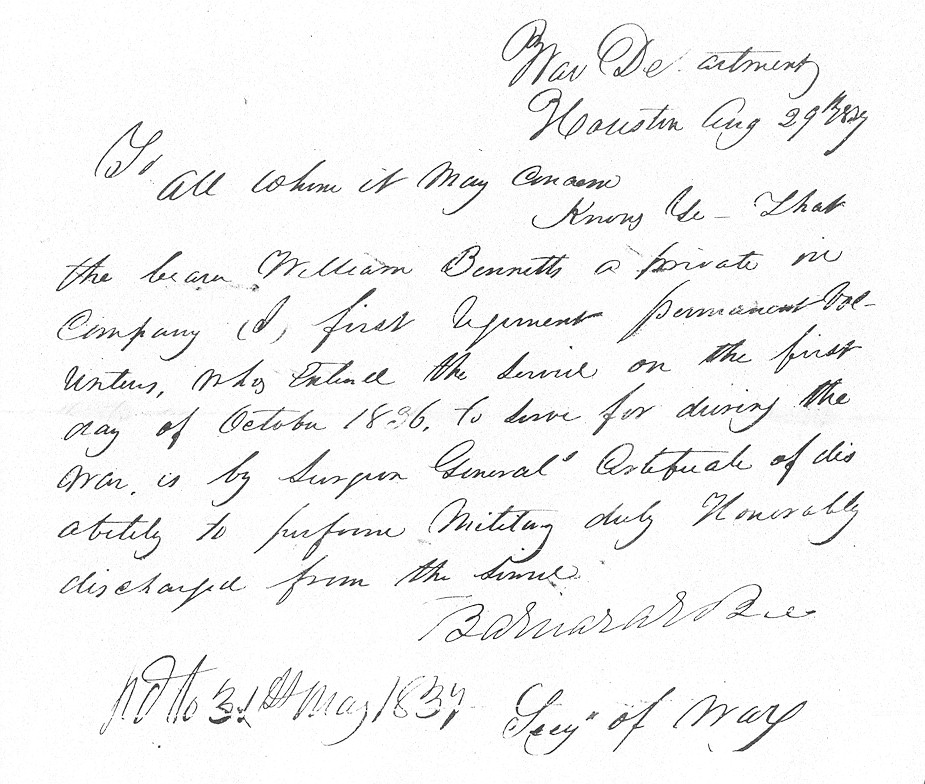 War De artment
Houston Aug 29th 1837
To
All whom it May Concern
Know Ye - That
the bearer William Bennetts a private in
Company (I) first regiment permanent Vol-
unteers, who Entered the Service on the first
day of October 1836. to serve for during the
War. is by Surgeon General's Certificate of dis
ability to perform Military duty Honorably
discharged from the Service
Barnard E Bee
Pd to 31st May 1837
Secy of War